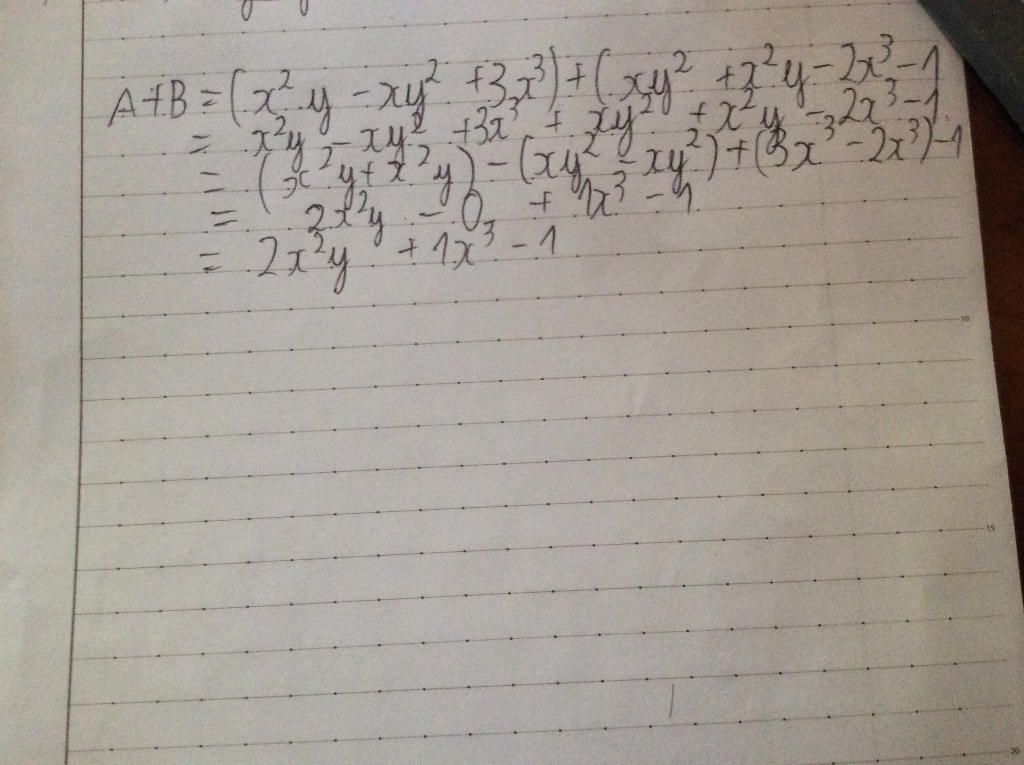 A+B = (x²y - xy² + 3x³) + (xy² + x²y - 2x³ - 1
= x²y - xy² + 3x³ + xy² + x²y - 2x³ - 1
= (x²y + x²y) - (xy² - xy²) + (3x³ - 2x³) - 1
= 2x²y - 0 + 1x³ - 1
= 2x²y + 1x³ - 1
10
15
20